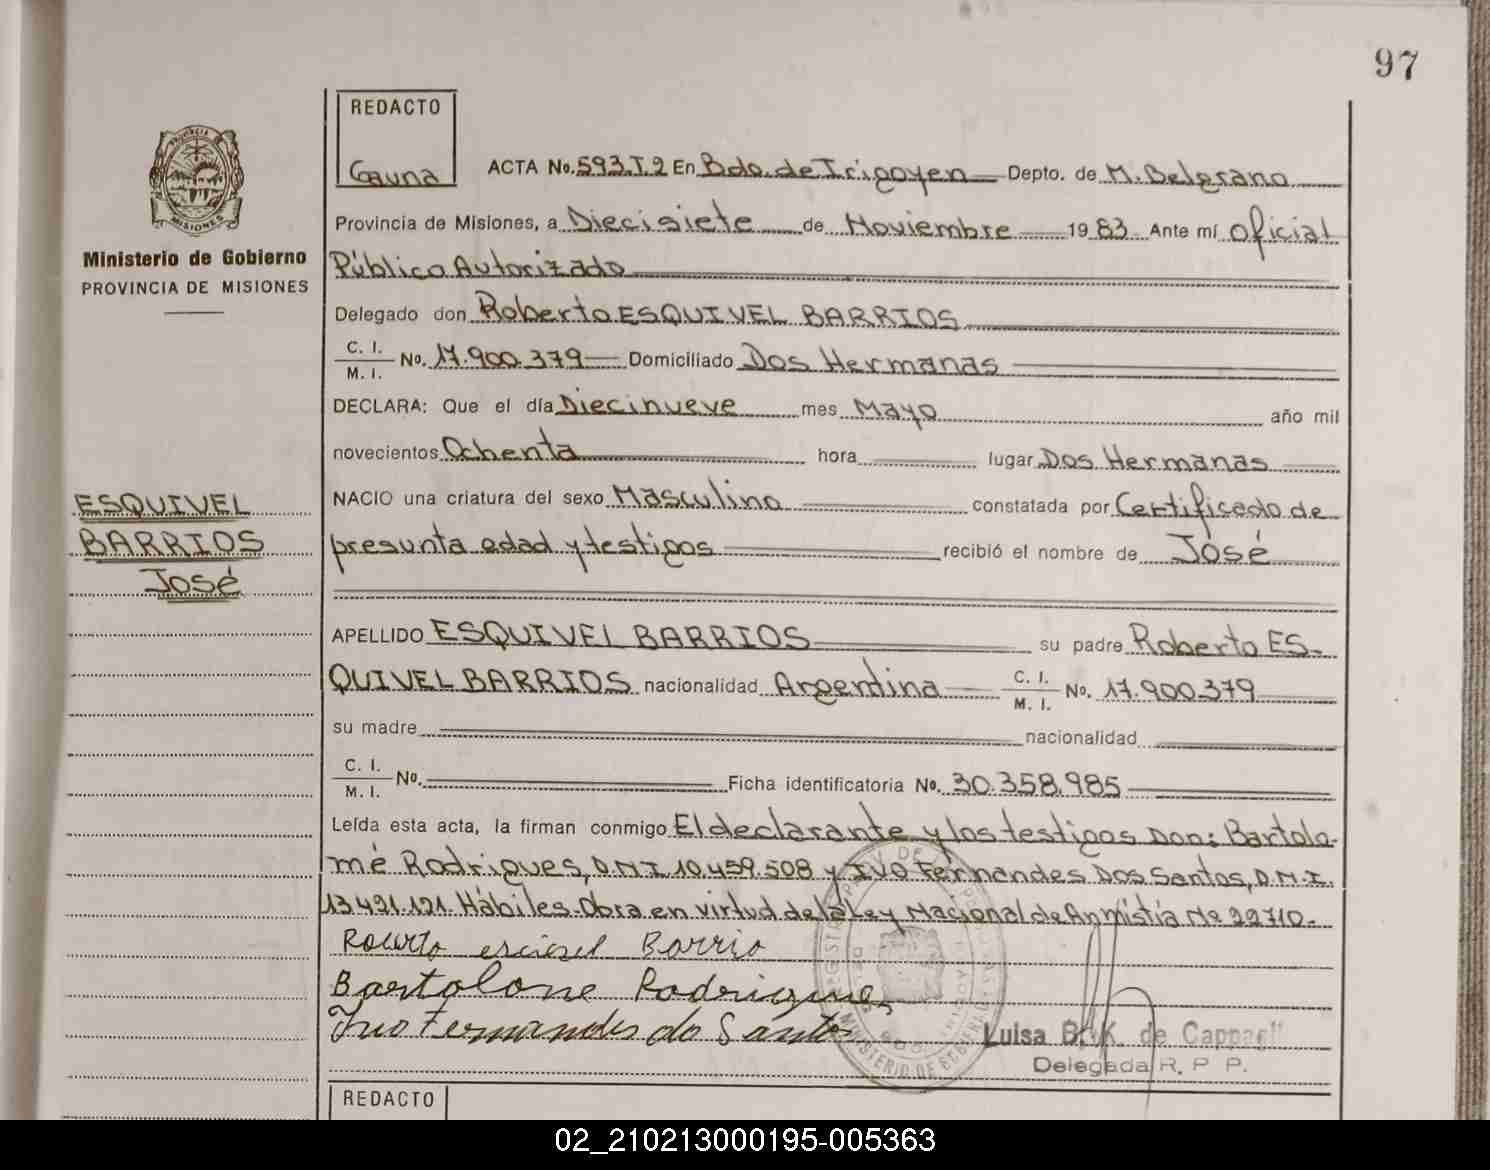 97
REDACTO
Gauna
ACTA No. 593.T.2 En Bdo. de Irigoyen Depto. de M. Belgrano
Provincia de Misiones, a Diecisiete de Noviembre 19 83 Ante mí Oficial
Público Autorizado
Delegado don Roberto ESQUIVEL BARRIOS
C. I. / M. I. No. 17.900.379 Domiciliado Dos Hermanas
DECLARA: Que el día Diecinueve mes Mayo año mil
novecientos Ochenta hora lugar Dos Hermanas
NACIO una criatura del sexo Masculino constatada por Certificado de
presunta edad y testigos recibió el nombre de José
APELLIDO ESQUIVEL BARRIOS su padre Roberto ES-
QUIVEL BARRIOS nacionalidad Argentina C. I. / M. I. No. 17.900.379
su madre nacionalidad
C. I. / M. I. No. Ficha identificatoria No. 30.358.985
Leída esta acta, la firman conmigo El declarante y los testigos Don: Bartolo-
mé Rodrigues, D.N.I. 10.459.508 y IVO Fernandes Dos Santos, D.N.I.
13.421.121. Hábiles. Obra en virtud de la Ley Nacional de Anmistía Nº 22710.-
Barrio
Bartolone Rodrigues
Ivo Fernandes do Santos
Luisa de Cappa
Delegada R. P P.
REDACTO
PROVINCIA DE
MISIONES
Ministerio de Gobierno
PROVINCIA DE MISIONES
ESQUIVEL
BARRIOS
José
MINISTERIO DE GOBIERNO
02_210213000195-005363